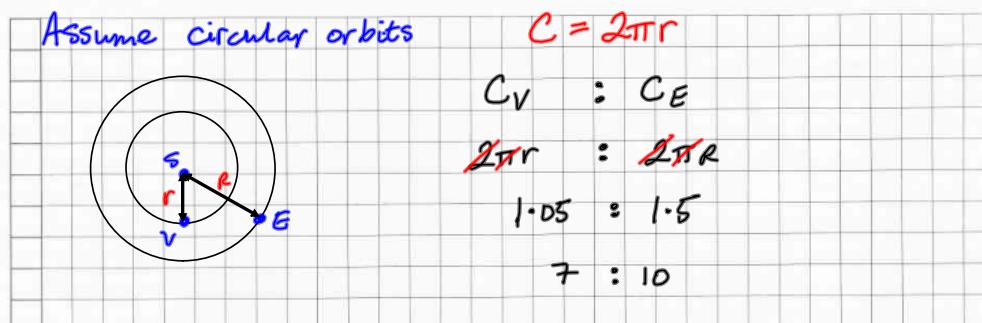 Assume circular orbits
C = 2πr
S
r
R
V
E
C_V : C_E
2πr : 2πR
1·05 : 1·5
7 : 10